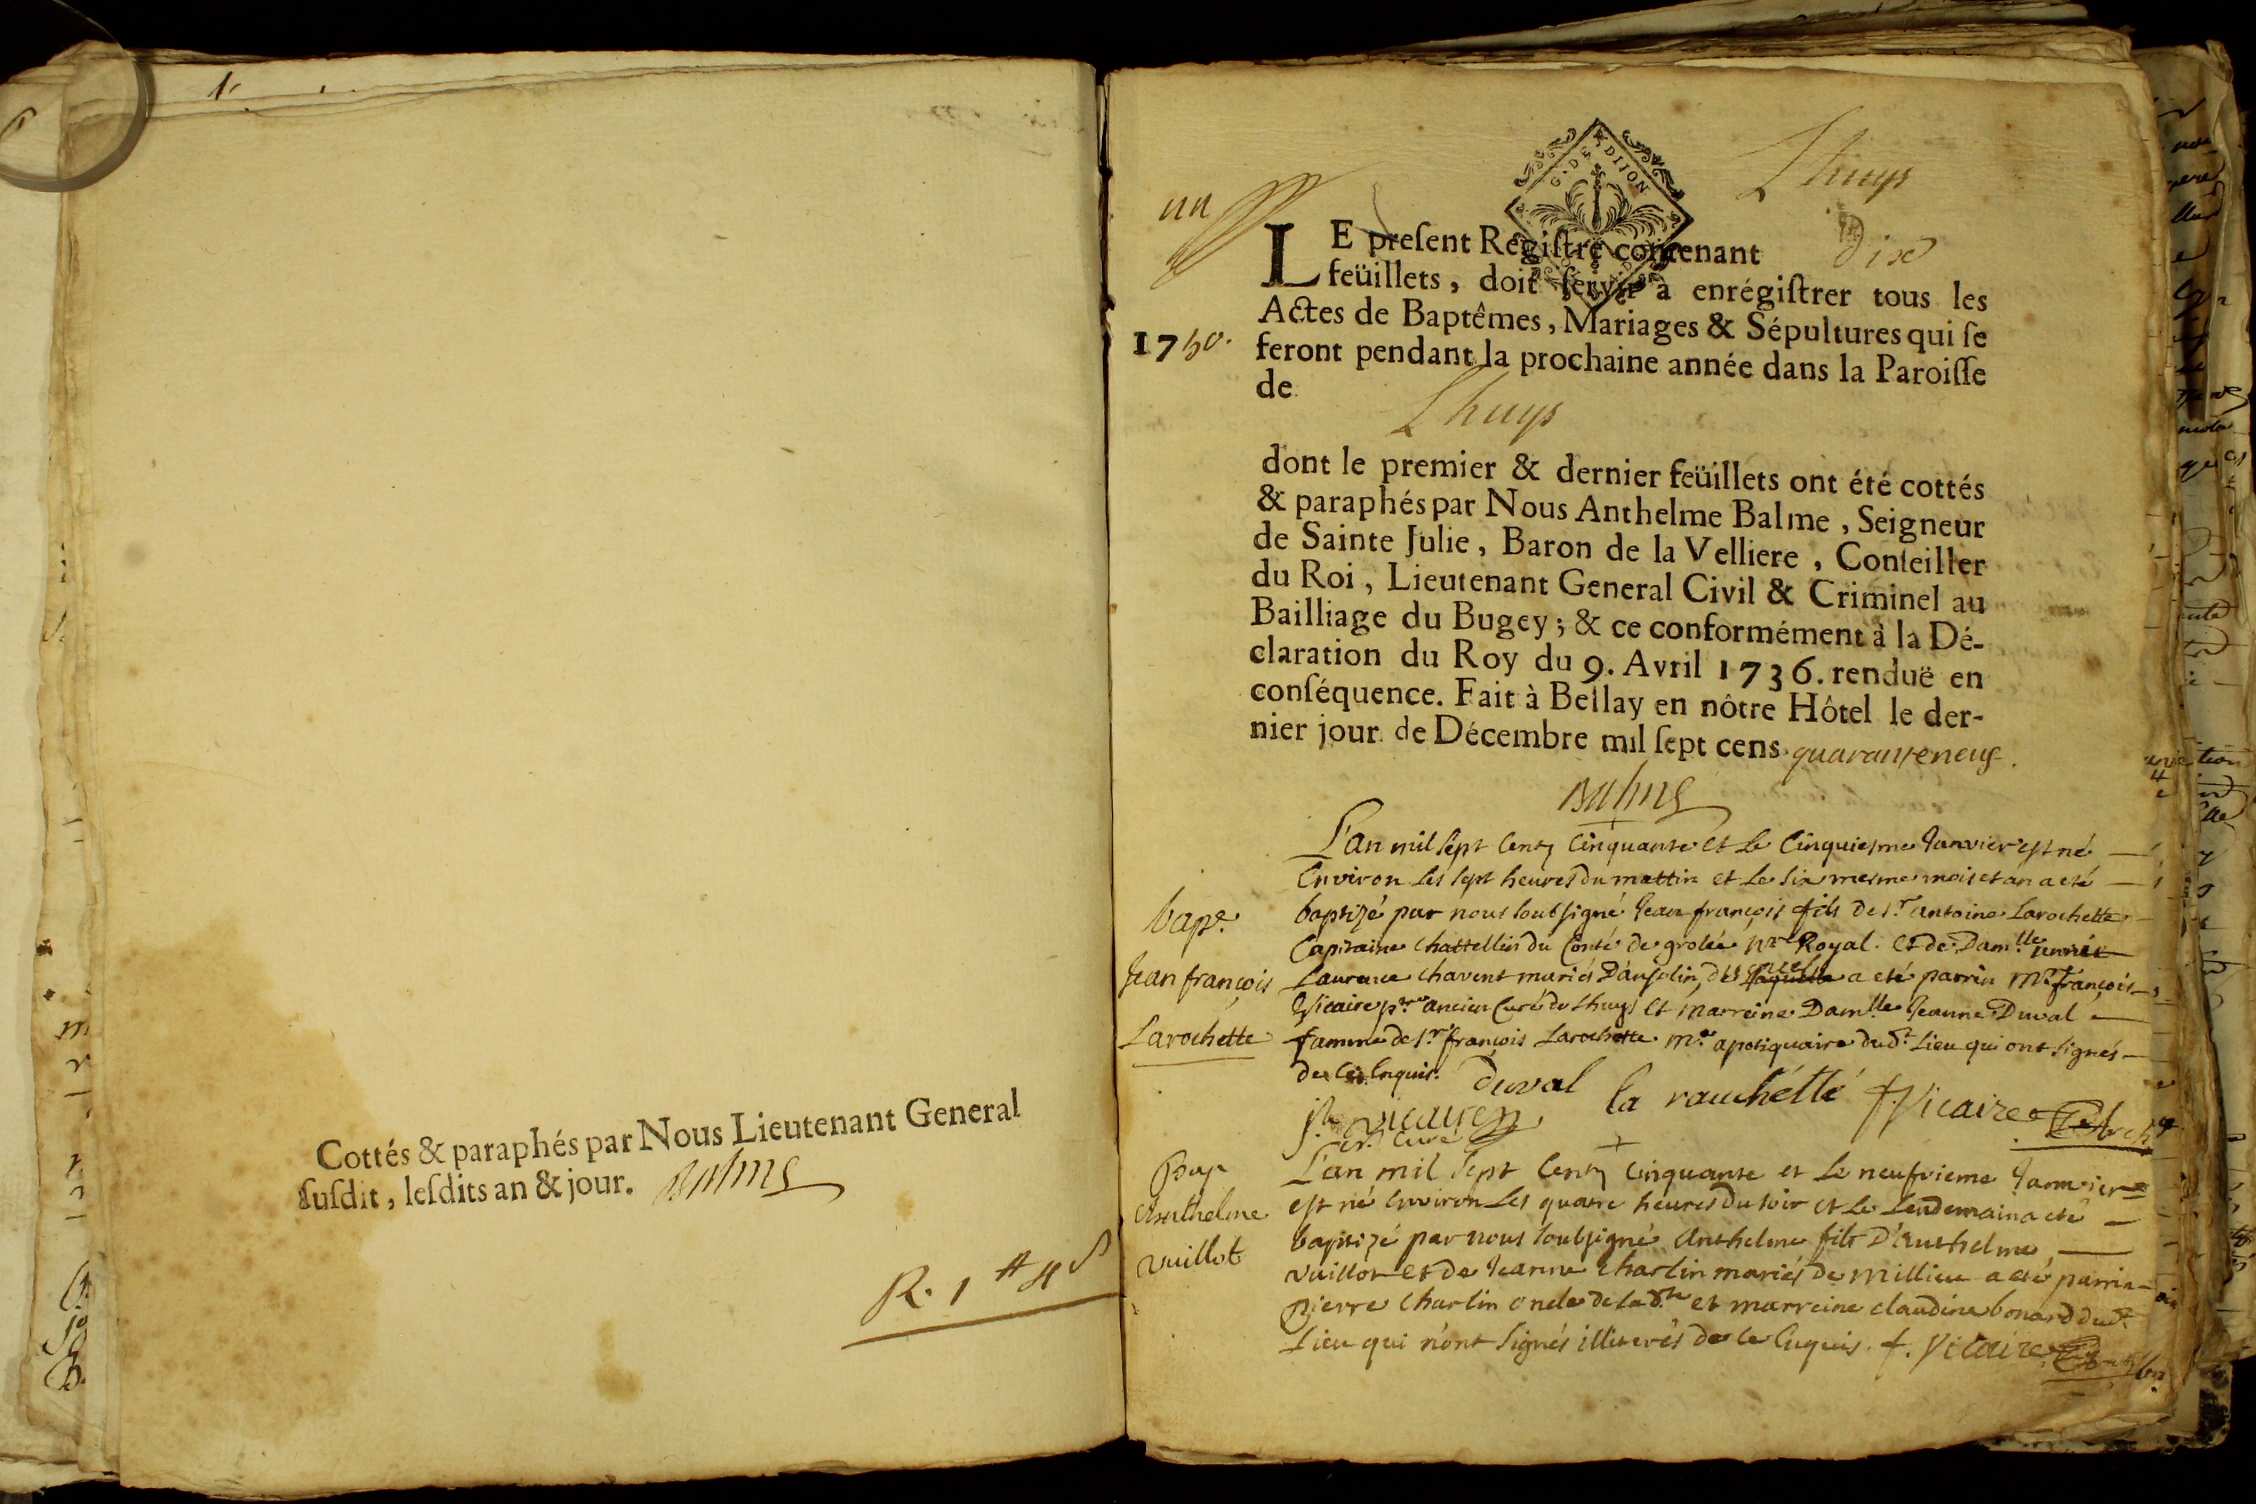 Cottés & paraphés par Nous Lieutenant General
susdit, lesdits an & jour. Balme
R. 1
un
G. DE DIJON
Lhuys
LE present Registre contenant dix
feüillets, doit servir à enrégistrer tous les
Actes de Baptêmes, Mariages & Sépultures qui se
1750. feront pendant la prochaine année dans la Paroisse
de
Lhuys
dont le premier & dernier feüillets ont été cottés
& paraphés par Nous Anthelme Balme, Seigneur
de Sainte Julie, Baron de la Velliere, Conseiller
du Roi, Lieutenant General Civil & Criminel au
Bailliage du Bugey; & ce conformément à la Dé-
claration du Roy du 9. Avril 1736. renduë en
conséquence. Fait à Bellay en nôtre Hôtel le der-
nier jour de Décembre mil sept cens quaranteneuf.
Balme
L'an mil sept Cents Cinquante et le Cinquiesme Janvier est né
Environ les sept heures du mattin et le six mesme mois et an a eté
bap.e
baptizé par nous soubsigné Jean françois fils de s.r antoine Larochette
Capitaine Chattellin du Conté de grolée Royal. et de Dam.lle
Jean françois
Laurence Chavent mariés a eté parrin M.re françois
Vicaire p.re ancien Curé de Lhuys et marreine Dam.lle Jeanne Duval
Larochette
famme de s.r françois Larochette M.e apotiquaire dud.t Lieu qui ont signés
de Ce Enquis. Duval la rauchétté f. Vicaire
Curé
Bap
L'an mil sept Cents Cinquante et le neufvieme Janvier
Anthelme
est né Environ les quatre heures du soir et le Lendemain a eté
baptizé par nous soubsigné Anthelme fils D'Anthelme
vuillot
Vuillot et de Jeanne Charlin mariés de Millieu a eté parrin
pierre Charlin oncle de lad.te et marreine claudine bonard dud.t
Lieu qui n'ont signés illiterés de Ce Enquis. f. Vicaire